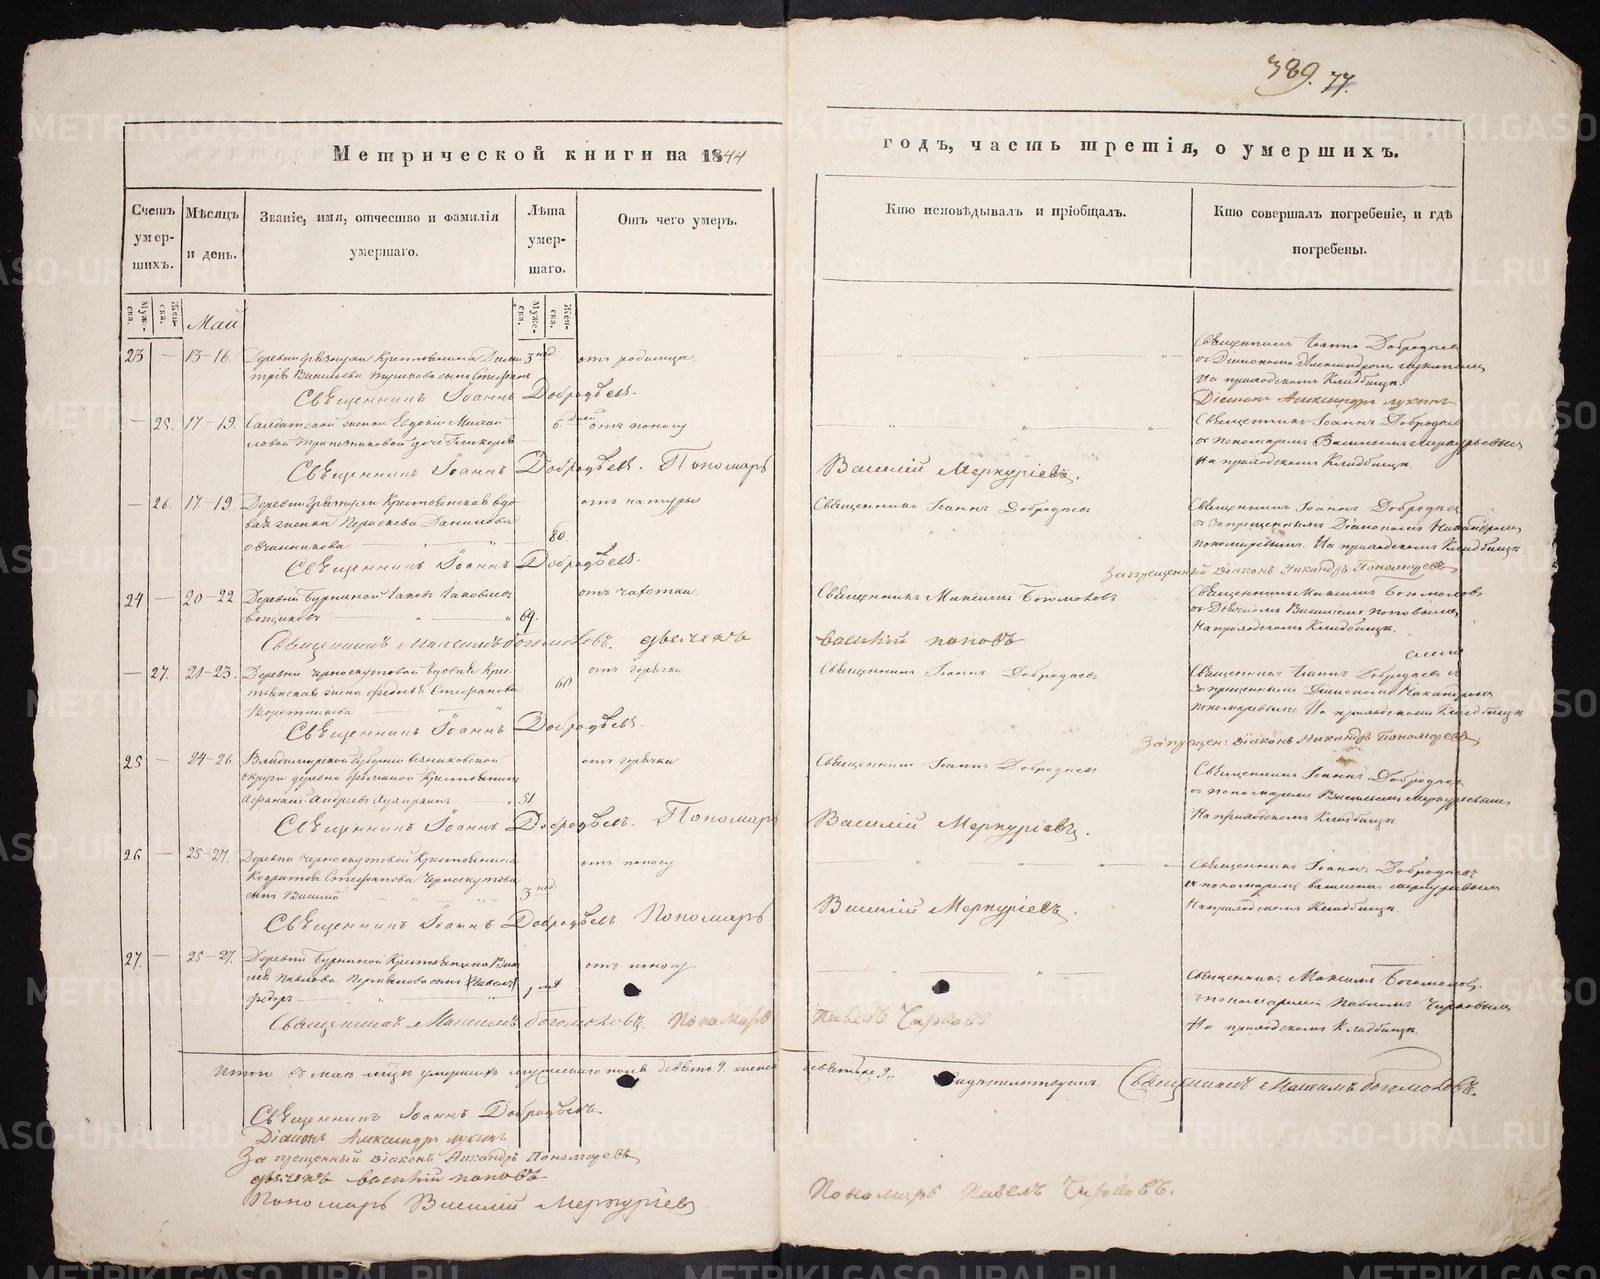 389. 77.
Метрической книги на 1844
годъ, часть третія, о умершихъ.
Счетъ умер-шихъ.
Мѣсяцъ и день.
Званіе, имя, отчество и фамилія умершаго.
Лѣта умер-шаго.
Отъ чего умеръ.
Кто исповѣдывалъ и пріобщалъ.
Кто совершалъ погребеніе, и гдѣ погребены.
Муже-ска.
Жен-ска.
Май
Муже-ска.
Жен-ска.
23 — 13-16. Деревни Крестьянина Дими- 3 нед. отъ родимца.
трія Васильева сынъ Стефанъ
Священникъ Іоаннъ Добродѣевъ.
Священникъ Іоаннъ Добродѣевъ
съ Діакономъ Александромъ Лукинымъ
На приходскомъ Кладбищѣ.
Діаконъ Александръ Лукинъ
— 25. 17-19. Солдатской женки Евдокіи Михай- 6 дней отъ поносу
ловой дочь Гликерія
Священникъ Іоаннъ Добродѣевъ. Пономарь Василій Меркуріевъ.
Священникъ Іоаннъ Добродѣевъ
съ пономаремъ Васильемъ Меркурьевымъ
На приходскомъ Кладбищѣ.
— 26. 17-19. Деревни Крестьянская вдо- отъ натуры
вая женка Параскева Данилова
Овчинникова 80
Священникъ Іоаннъ Добродѣевъ.
Священникъ Іоаннъ Добродѣевъ
Священникъ Іоаннъ Добродѣевъ
съ Запрещеннымъ Діакономъ Никандромъ
Пономаревымъ. На приходскомъ Кладбищѣ.
Запрещенный діаконъ Никандръ Пономаревъ
24 — 20-22 Деревни Бурниной Іаковъ Іаковлевъ отъ чахотки.
69.
Священникъ Максимъ Богомоловъ. дьячекъ василій поповъ
Священникъ Максимъ Богомоловъ
Священникъ Максимъ Богомоловъ
съ Дьячкомъ Василіемъ Поповымъ,
На приходскомъ Кладбищѣ.
— 27. 21-23. Деревни Черноскутовой вдовая Кре- отъ горячки
стьянская жена Федосья Стефанова 60
Воротникова
Священникъ Іоаннъ Добродѣевъ.
Священникъ Іоаннъ Добродѣевъ
Священникъ Іоаннъ Добродѣевъ съ
Запрещеннымъ Діакономъ Никандромъ
Пономаревымъ На приходскомъ Кладбищѣ
Запрещен: діаконъ Никандръ Пономаревъ
25 — 24-26 Владимирской Губерніи Вязниковской отъ горячки
округи деревни Крестьянинъ
Афанасій Андреевъ 51
Священникъ Іоаннъ Добродѣевъ. Пономарь Василій Меркуріевъ.
Священникъ Іоаннъ Добродѣевъ
Священникъ Іоаннъ Добродѣевъ
съ пономаремъ Васильемъ Меркурьевымъ
На приходскомъ Кладбищѣ
26 — 25-27. Деревни Черноскутовой Крестьянина отъ поносу
Кондратья Стефанова Черноскутова
сынъ Василій 3 нед.
Священникъ Іоаннъ Добродѣевъ Пономарь Василій Меркуріевъ.
Священникъ Іоаннъ Добродѣевъ
съ пономаремъ Васильемъ Меркурьевымъ
На приходскомъ Кладбищѣ.
27. — 25-27. Деревни Бурниной Крестьянина Васи- отъ поносу
лья Павлова сынъ
Федоръ
Священникъ Максимъ Богомоловъ. Пономарь Павелъ Чирковъ
Священникъ Максимъ Богомоловъ.
съ пономаремъ Павломъ Чирковымъ
На приходскомъ Кладбищѣ.
Итого въ маѣ мцѣ умершихъ мужескаго пола девять 9. женска девять же 9,, Священникъ Максимъ Богомоловъ.
Священникъ Іоаннъ Добродѣевъ
Діаконъ Александръ Лукинъ
Запрещенный діаконъ Никандръ Пономаревъ
дьячекъ василій поповъ
Пономарь Василій Меркуріевъ
Пономарь Павелъ Чирковъ.
METRIKI.GASO-URAL.RU